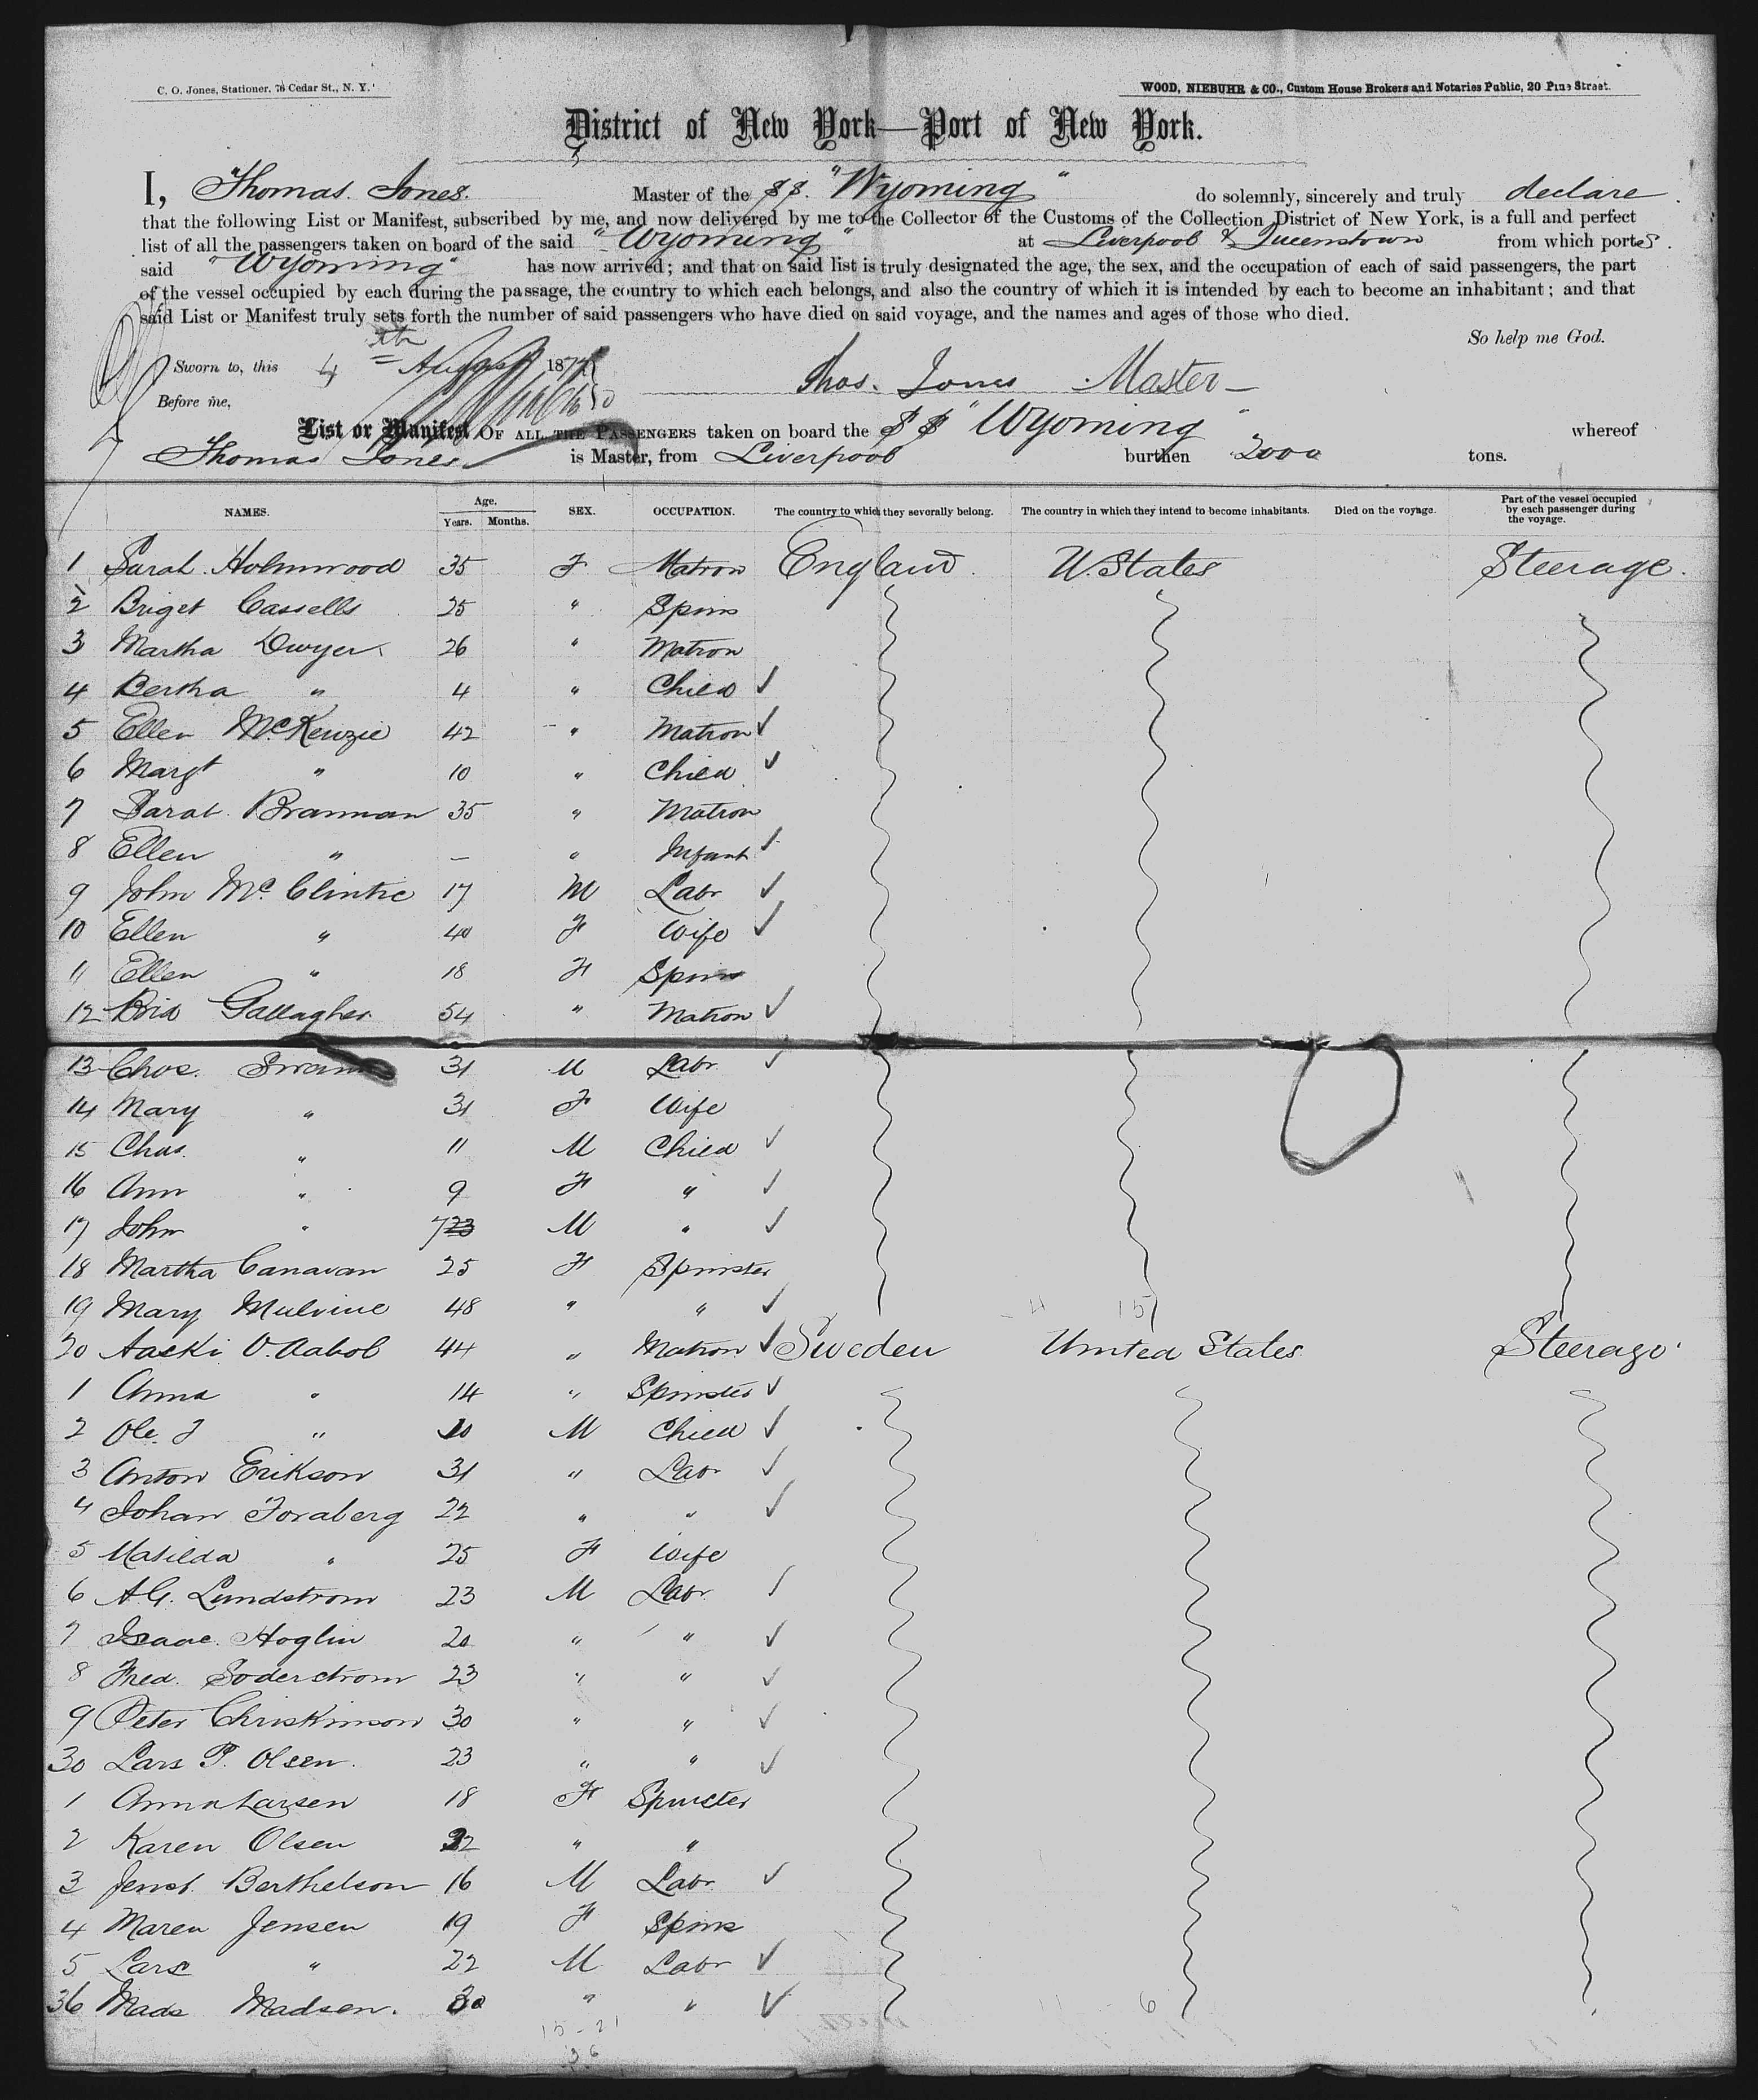 C. O. Jones, Stationer, 76 Cedar St., N. Y.
WOOD, NIEBUHR & CO., Custom House Brokers and Notaries Public, 20 Pine Street.
District of New York—Port of New York.
I, Thomas Jones. Master of the SS. "Wyoming" do solemnly, sincerely and truly declare
that the following List or Manifest, subscribed by me, and now delivered by me to the Collector of the Customs of the Collection District of New York, is a full and perfect
list of all the passengers taken on board of the said "Wyoming" at Liverpool & Queenstown from which ports.
said "Wyoming" has now arrived; and that on said list is truly designated the age, the sex, and the occupation of each of said passengers, the part
of the vessel occupied by each during the passage, the country to which each belongs, and also the country of which it is intended by each to become an inhabitant; and that
said List or Manifest truly sets forth the number of said passengers who have died on said voyage, and the names and ages of those who died.
So help me God.
Sworn to, this 4th August 187
Thos. Jones Master
Before me,
List or Manifest OF ALL THE PASSENGERS taken on board the SS "Wyoming" whereof
Thomas Jones is Master, from Liverpool burthen 2000 tons.
NAMES. Age. Years. Months. SEX. OCCUPATION. The country to which they severally belong. The country in which they intend to become inhabitants. Died on the voyage. Part of the vessel occupied by each passenger during the voyage.
1 Sarah Holmwood 35 F Matron England U. States Steerage.
2 Briget Cassells 25 " Spins
3 Martha Dwyer 26 " Matron
4 Bertha " 4 " Child ✓
5 Ellen McKenzie 42 " Matron ✓
6 Margt " 10 " Child ✓
7 Sarah Brannan 35 " Matron
8 Ellen " — " Infant ✓
9 John McClintic 17 M Labr ✓
10 Ellen " 40 F Wife ✓
11 Ellen " 18 F Spins
12 Brid Gallagher 54 " Matron ✓
13 Chas. 31 M Labr ✓
14 Mary " 31 F Wife
15 Chas. " 11 M Child ✓
16 Ann " 9 F " ✓
17 John " 7 23 M " ✓
18 Martha Canavan 25 F Spinster
19 Mary Mulvine 48 " " ✓
20 Aaski O. Aabol 44 " Matron ✓ Sweden United States Steerage
1 Anna " 14 " Spinster ✓
2 Ole J " 10 M Child ✓
3 Anton Erikson 31 " Labr ✓
4 Johan Forsberg 22 " " ✓
5 Matilda " 25 F Wife
6 A G. Lundstrom 23 M Labr ✓
7 Isaac Hoglin 20 " " ✓
8 Fred. Soderstrom 23 " " ✓
9 Peter Christinson 30 " " ✓
30 Lars P. Olsen. 23 " " ✓
1 Anna Larsen 18 F Spinster
2 Karen Olsen 22 " "
3 Berthelson 16 M Labr ✓
4 Maren Jensen 19 F Spins
5 Lars " 22 M Labr ✓
36 Mads Madsen. 30 " " ✓
15 - 21
36